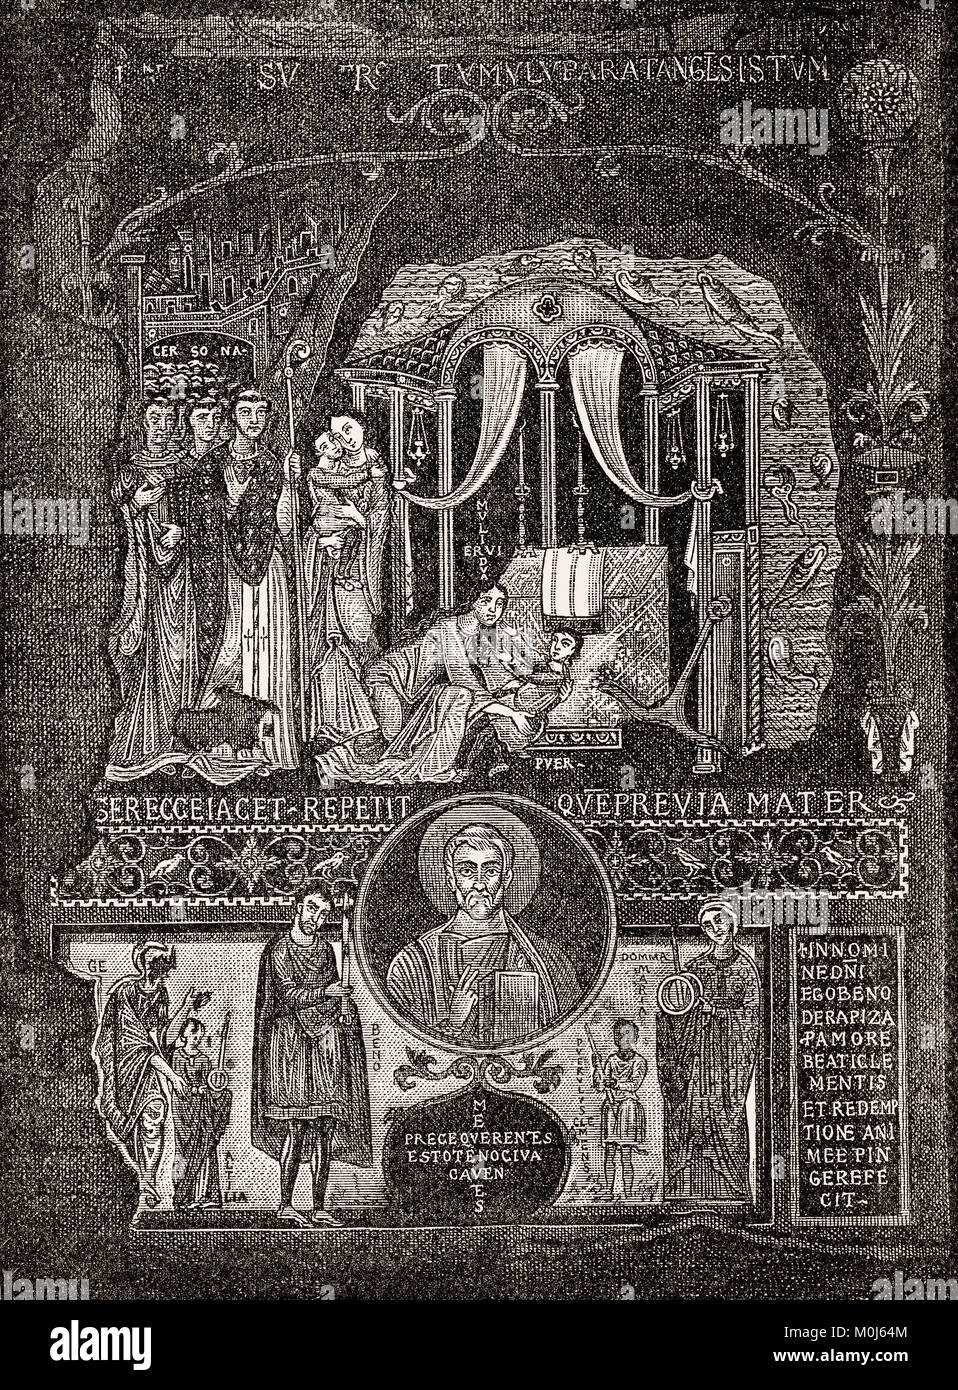 TVMVLV PARAT ANGELS ISTVM
CER SO NA-
MVLT
ERVI
PVER~
INTEGER ECCE IACET REPETIT QVE PREVIA MATER
GE
BENO
ALTILIA
DOMNA
MARIA
ME
PRECE QVERENTES
ESTOTE NOCIVA
CAVEN
TES
+INNOMI
NEDNI
EGOBENO
DERAPIZA
PAMORE
BEATICLE
MENTIS
ETREDEMP
TIONE ANI
MEE PIN
GEREFE
CIT-
alamy
Image ID: M0J64M
www.alamy.com